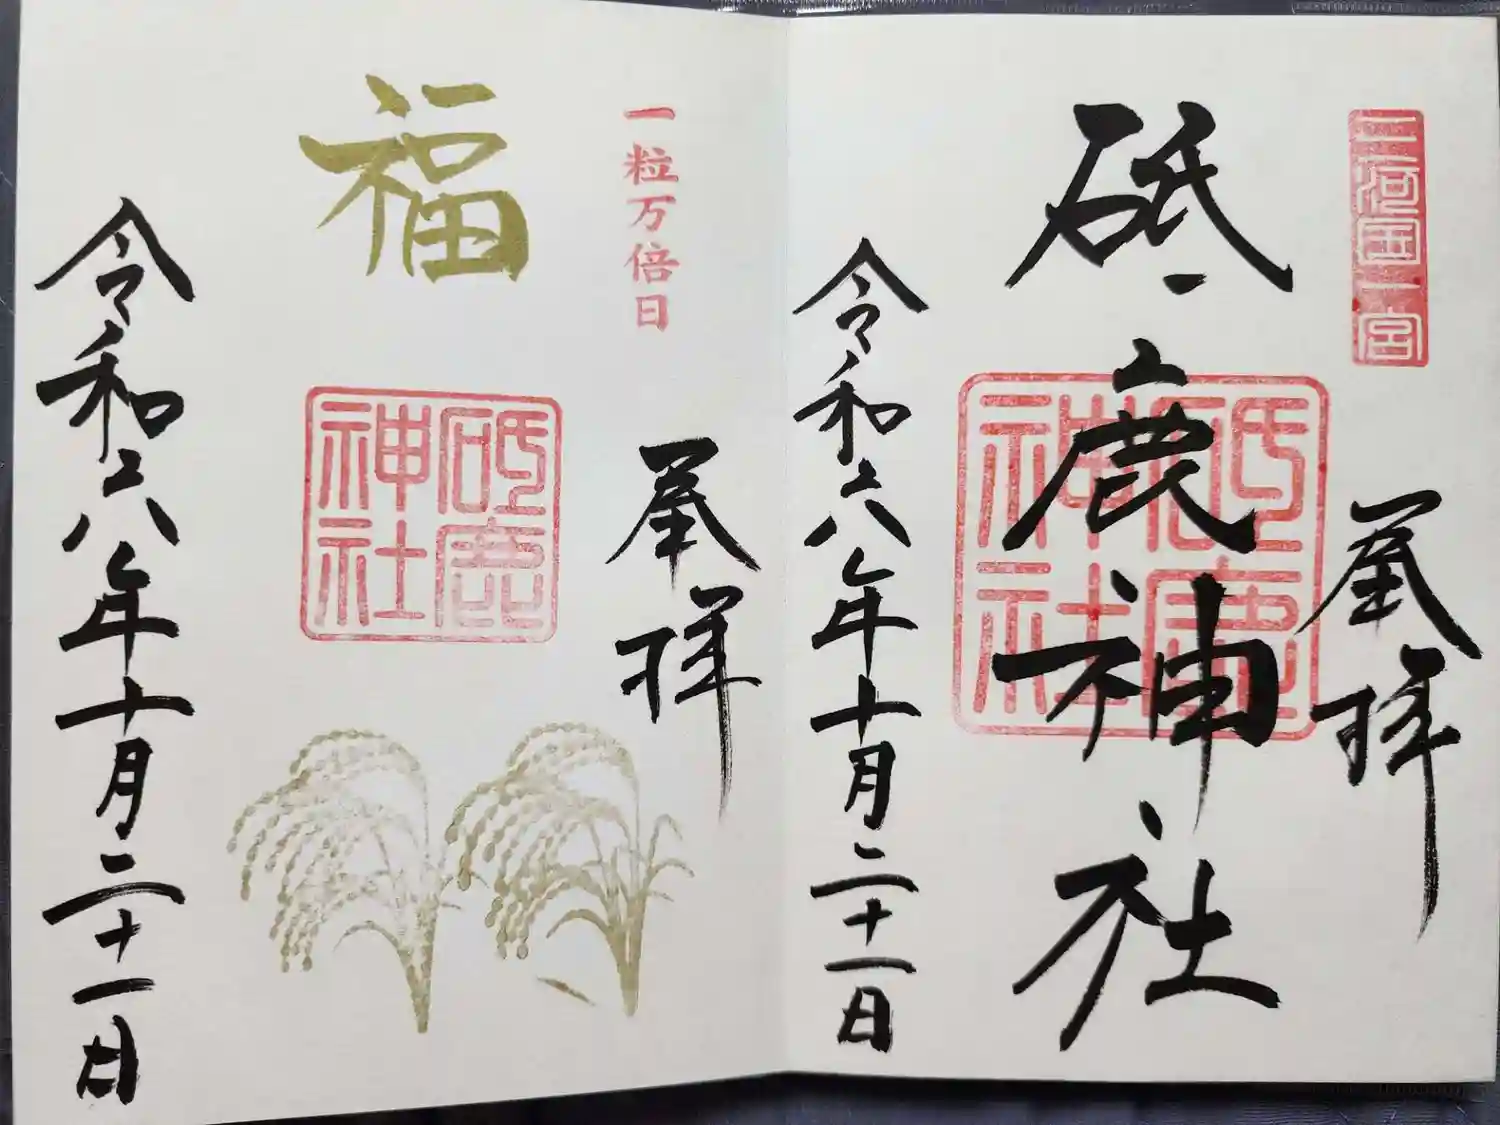 三河国一宮
奉拝
砥鹿神社
砥鹿
神社
令和六年十月二十一日
一粒万倍日
奉拝
福
砥鹿
神社
令和六年十月二十一日